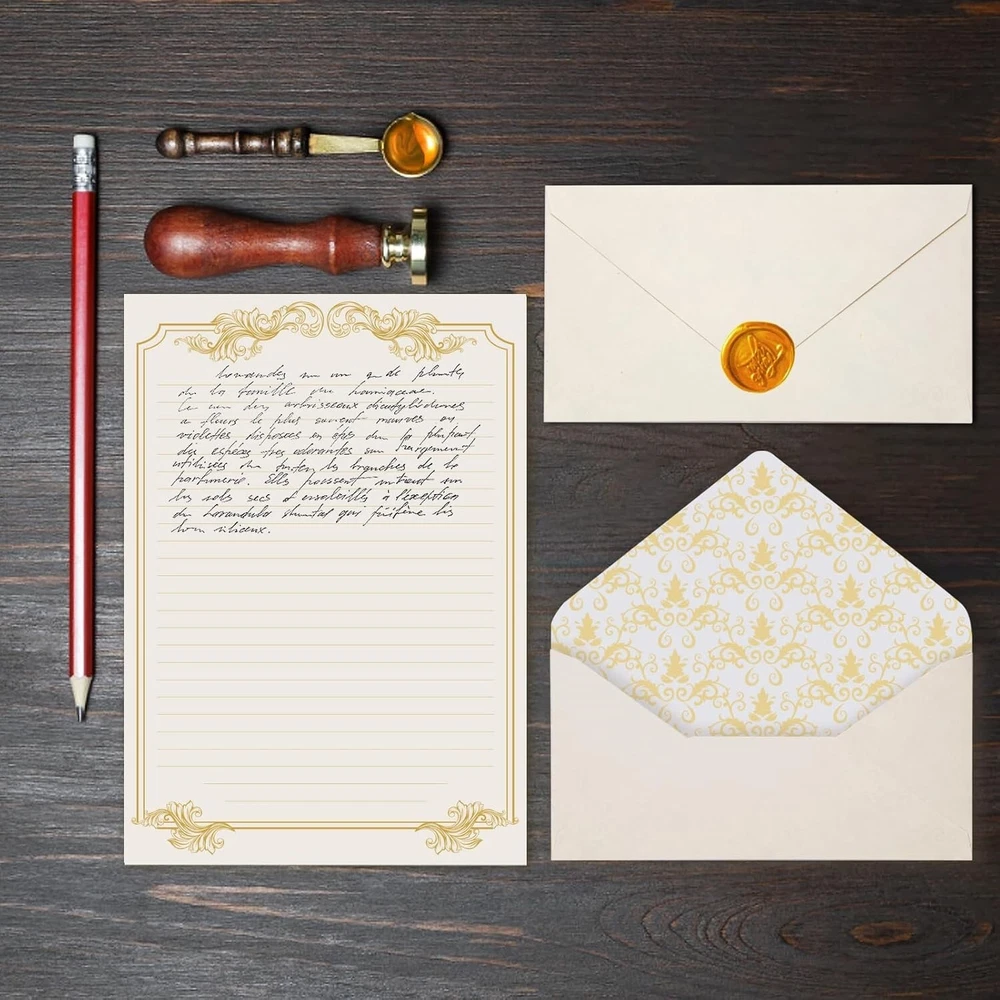 un de plantes
de la famille du
Ce sont des arbrisseaux dicotylédones
a fleurs le plus souvent mauves ou
violettes disposées en épis dur la plupart,
des espèces tres odorantes sur largement
utilisées du toutes les branches de la
parfumerie. Elles poussent surtout sur
les sols secs et ensoleillés à l'exception
du Lavandula qui préfère les
siliceux.